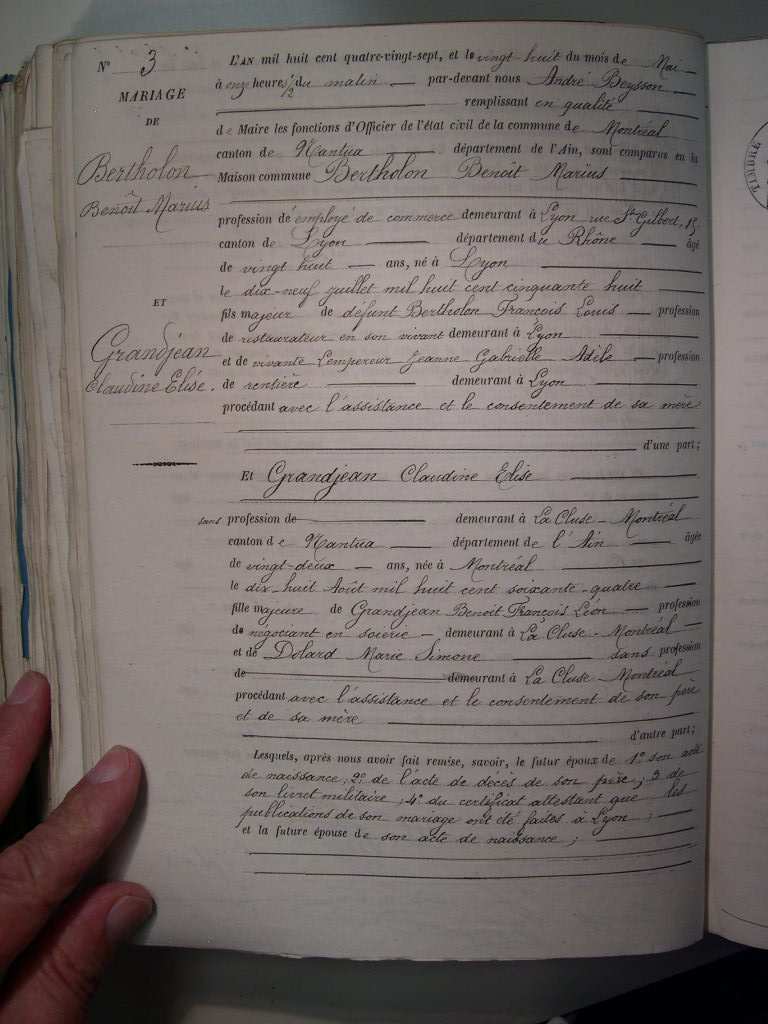 N° 3
MARIAGE
DE
Bertholon
Benoît Marius
ET
Grandjean
Claudine Elise.
L'AN mil huit cent quatre-vingt-sept, et le vingt huit du mois de Mai
à onze heures ½ du matin par-devant nous André Beysson
remplissant en qualité
de Maire les fonctions d'Officier de l'état civil de la commune de Montréal
canton de Nantua département de l'Ain, sont comparus en la
Maison commune Bertholon Benoît Marius
profession de employé de commerce demeurant à Lyon rue St Gilbert, 15
canton de Lyon département du Rhône âgé
de vingt huit ans, né à Lyon
le dix-neuf juillet mil huit cent cinquante huit
fils majeur de défunt Bertholon François Louis profession
de restaurateur en son vivant demeurant à Lyon
et de vivante Lempereur Jeanne Gabrielle Adèle profession
de rentière demeurant à Lyon
procédant avec l'assistance et le consentement de sa mère
d'une part;
Et Grandjean Claudine Elise
sans profession de demeurant à La Cluse - Montréal
canton de Nantua département de l'Ain âgée
de vingt-deux ans, née à Montréal
le dix-huit Août mil huit cent soixante-quatre
fille majeure de Grandjean Benoit François Léon profession
de négociant en soierie demeurant à La Cluse - Montréal
et de Dolard Marie Simone sans profession
de demeurant à La Cluse - Montréal
procédant avec l'assistance et le consentement de son père
et de sa mère
d'autre part;
Lesquels, après nous avoir fait remise, savoir, le futur époux de 1° son acte
de naissance; 2° de l'acte de décès de son père; 3 de
son livret militaire; 4° du certificat attestant que les
publications de son mariage ont été faites à Lyon;
et la future épouse de son acte de naissance;
TIMBRE